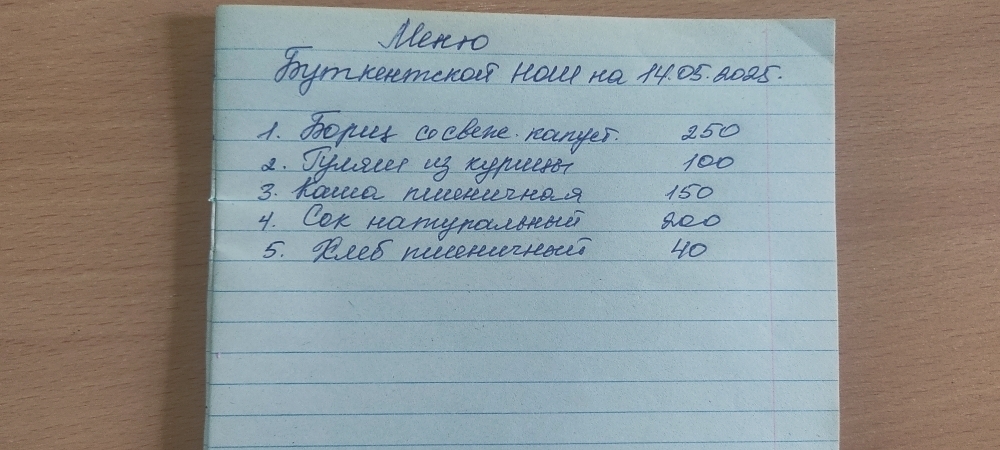 Меню
Буткентской НОШ на 14.05.2025.
1. Борщ со свеж. капуст. 250
2. Гуляш из курицы 100
3. Каша пшеничная 150
4. Сок натуральный 200
5. Хлеб пшеничный 40